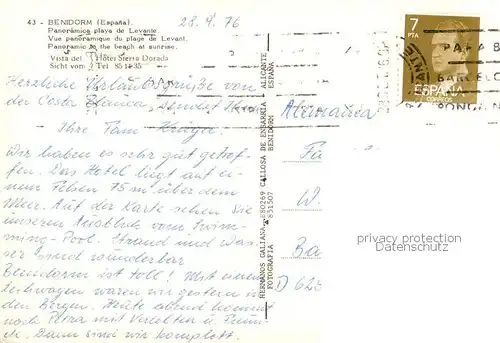 43 - BENIDORM (España)
Panorámica playa de Levante
Vue panoramique du plage de Levant
Panoramic to the beach at sunrise.
Vista del Hotel Sierra Dorada
Sicht vom Tel
28.9.76
Herzliche Urlaubsgrüße von
der Costa Blanca, sendet Ihnen
Ihre Fam. Krüger.
Wir haben es sehr gut getrof-
fen. Das Hotel liegt auf ei-
nem Felsen 75 m über dem
Meer. Auf der Karte sehen Sie
unseren Ausblick vom Swim-
ming-Pool. Strand und Was-
ser sind wunderbar
Benidorm ist toll! Mit einem
Leihwagen waren wir gestern in
den Bergen. Heute abend kommt
noch Petra mit
Dann sind wir komplett.
HERMANOS GALIANA
FOTOGRAFIA
CALLOSA DE ENSARRIA
BENIDORM
ALICANTE
ESPAÑA
Alemania
Fa
W.
Ba
D 628
7
PTA
ESPAÑA
CORREOS
PAPA
BARCEL
PONGA
privacy protection
Datenschutz